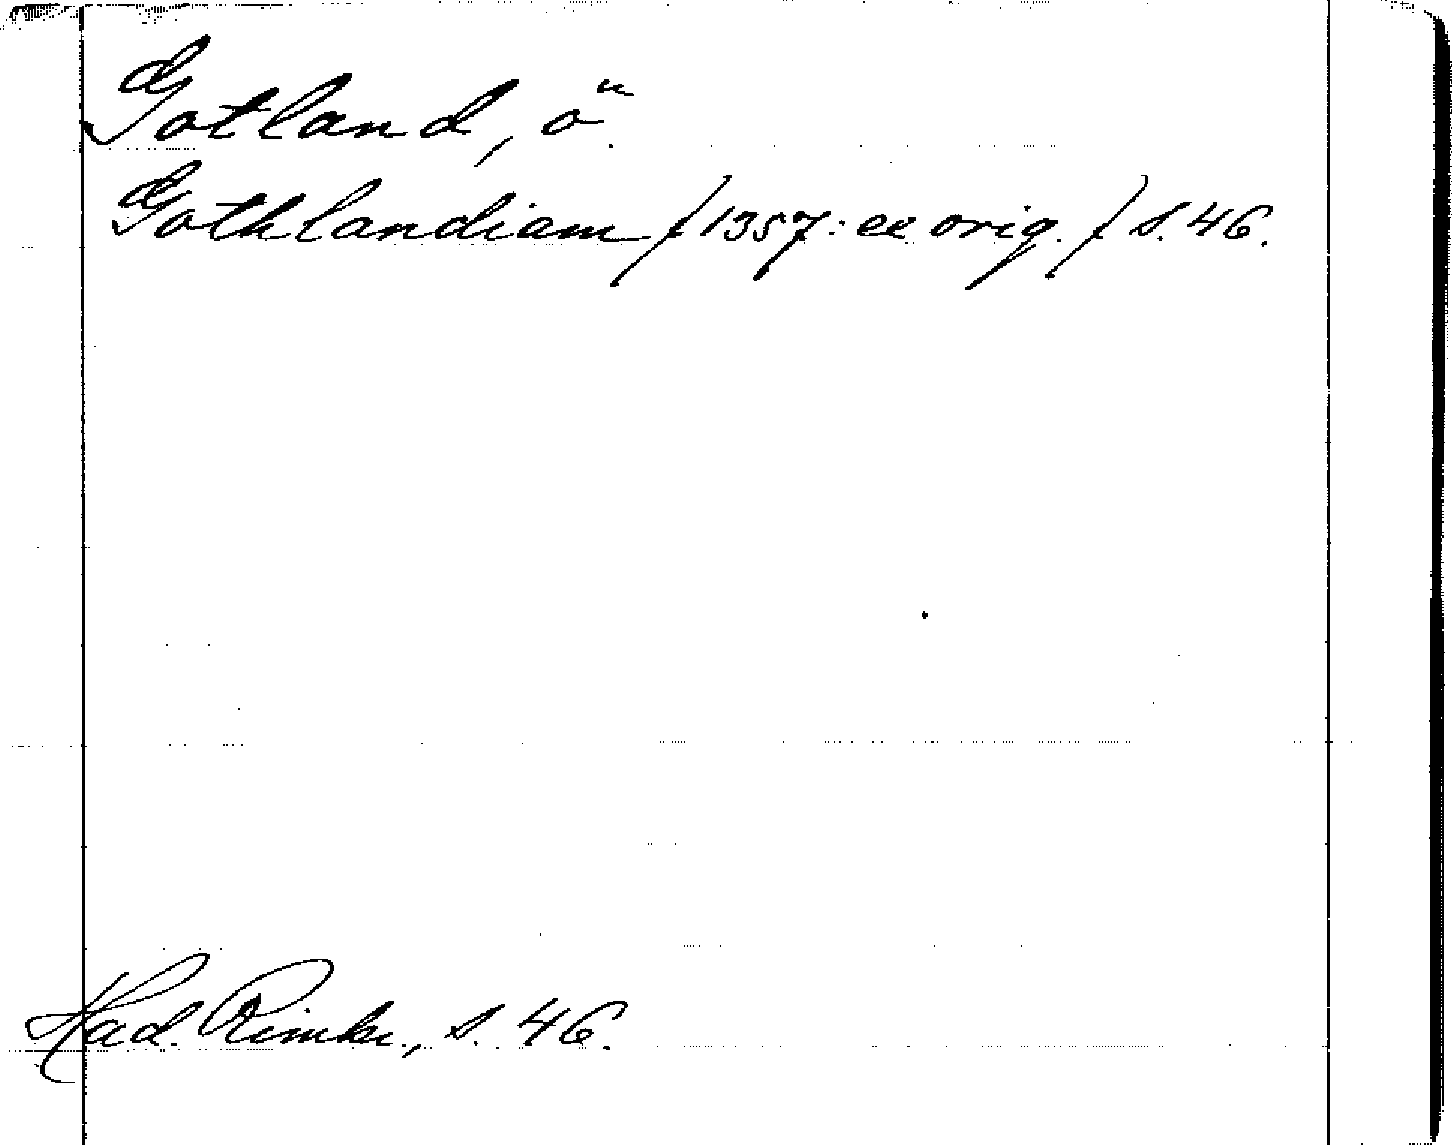 Gotland, ö.
Gothlandiam /1357: ex orig./ s. 46.
Had. Rimkr., s. 46.